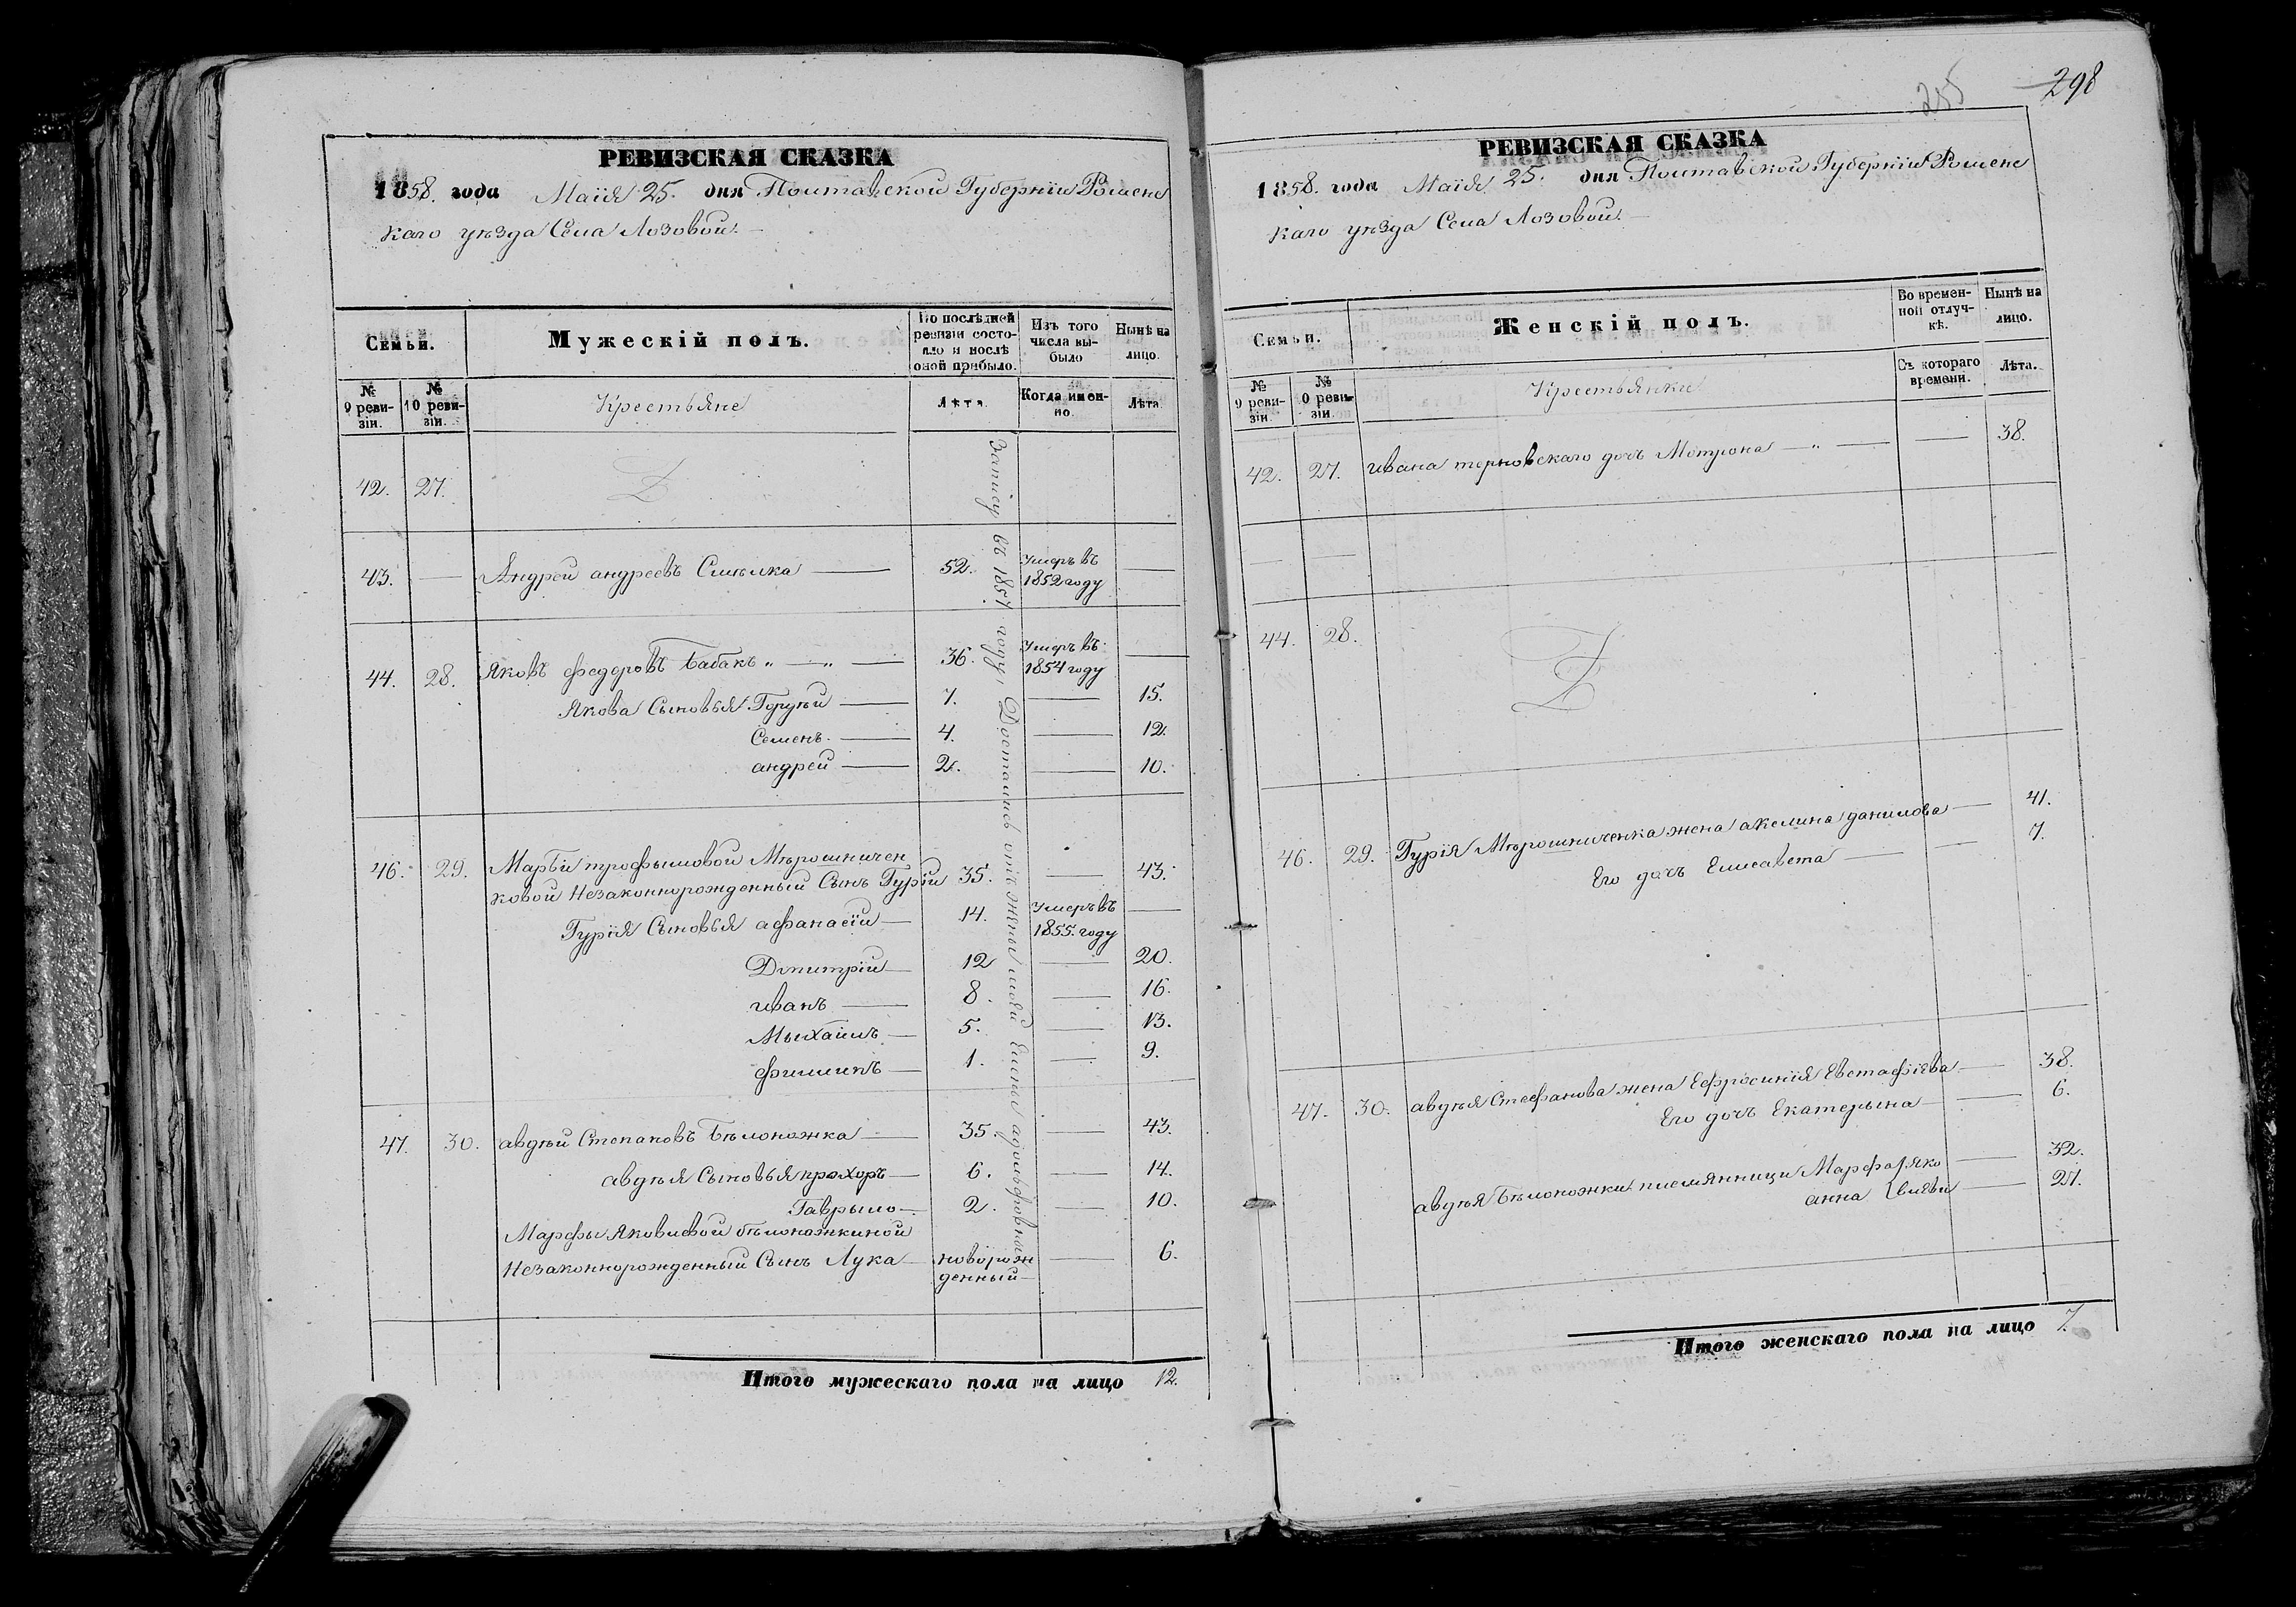 РЕВИЗСКАЯ СКАЗКА
1858. года Маія 25. дня Полтавской Губерніи Роменс
каго уѣзда Села Лозовой.
Семьи.
Мужескій полъ.
По послѣдней ревизіи состо-
яло и послѣ оной прибыло.
Изъ того числа вы-
было
Нынѣ на лицо.
№ 9 реви-
зіи.
№ 10 реви-
зіи.
Крестьяне
Лѣта.
Когда имен-
но.
Лѣта.
42. 27.
43. — Андрей андреевъ Смѣлка — 52. Умеръ въ 1852 году —
44. 28. Яковъ федоровъ Бабакъ — 36. Умеръ въ 1854 году —
Якова Сыновья Гурѣй — 7. — 15.
Семенъ. — 4. — 12.
андрей — 2. — 10.
46. 29. Марѳи трофымовой Мѣрошничен
ковой Незаконнорожденный Сынъ Гурій 35. — 43.
Гурія Сыновья афанасій — 14. Умеръ въ 1855. году —
Дмитрій — 12 — 20.
иванъ — 8. — 16.
Мыхайлъ — 5. — 13.
филипъ — 1. — 9.
47. 30. авдѣй Степановъ Бѣлоножка — 35. — 43.
авдѣя Сыновья прохоръ — 6. — 14.
Гаврыло — 2. — 10.
Марфы Яковлевой бѣлоножкиной
Незаконнорожденный Сынъ Лука — новорож
денный — — 6.
Запису въ 1857 году, Достались отъ жены моей Елены адольфовны
Итого мужескаго пола на лицо 12.
255
298
РЕВИЗСКАЯ СКАЗКА
1858. года Маія 25. дня Полтавской Губерніи Роменс
каго уѣзда Села Лозовой.
Семьи.
Женскій полъ.
Во времен-
ной отлуч-
кѣ.
Нынѣ на лицо.
№ 9 реви-
зіи.
№ 0 реви-
зіи.
Крестьянки
Съ котораго времени.
Лѣта.
42. 27. ивана терновскаго дочь Мотрона — — 38.
44. 28.
46. 29. Гурія Мѣрошниченка жена акелина данилова — 41.
Его дочь Елисавета — — 7.
47. 30. авдѣя Стефанова жена Ефросинія Евстафіева — 38.
Его дочь Екатерына — — 6.
авдѣя Бѣлоножки племянници Марфа Яко — 32.
анна влевы — 21.
Итого женскаго пола на лицо 7.